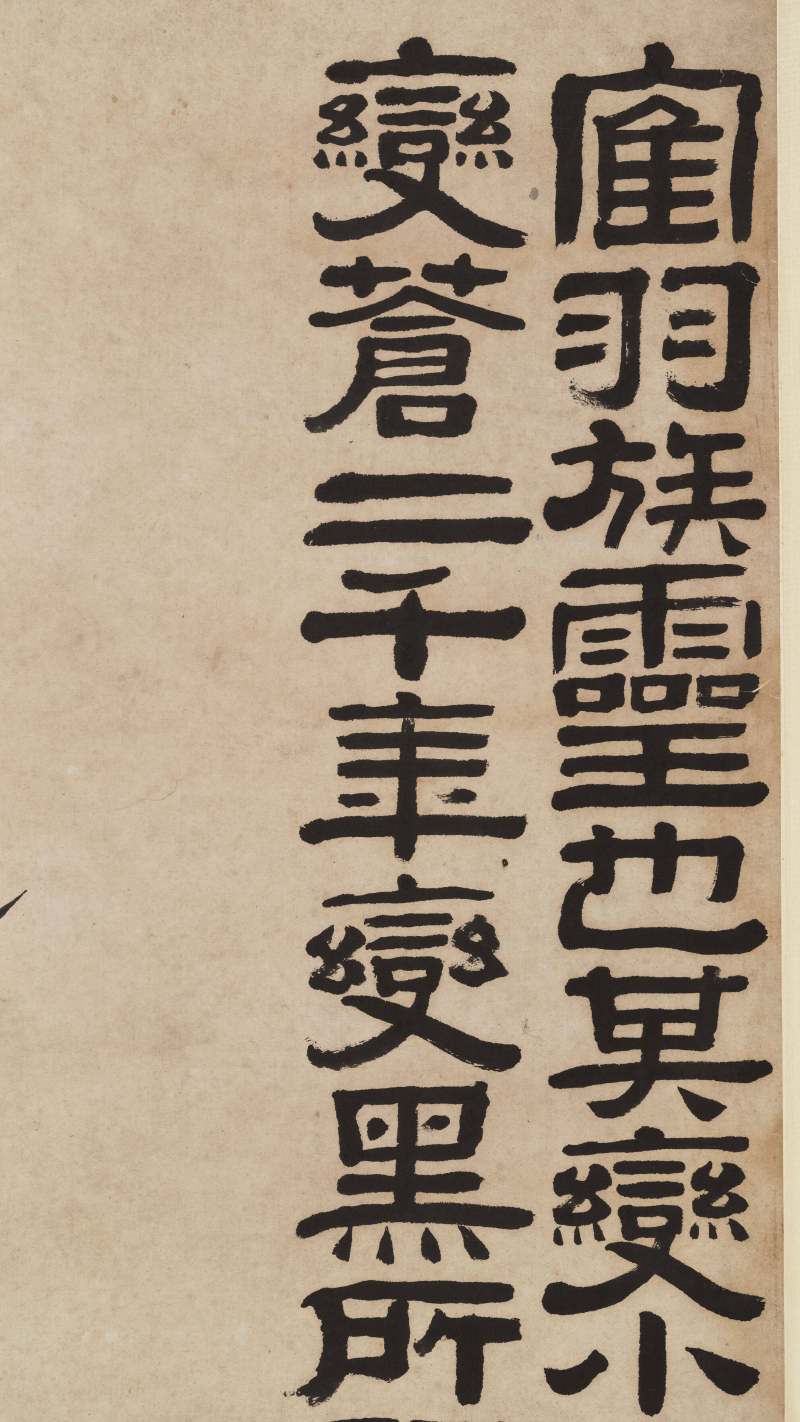 寉羽族靈也其變小
變蒼二千年變黑所